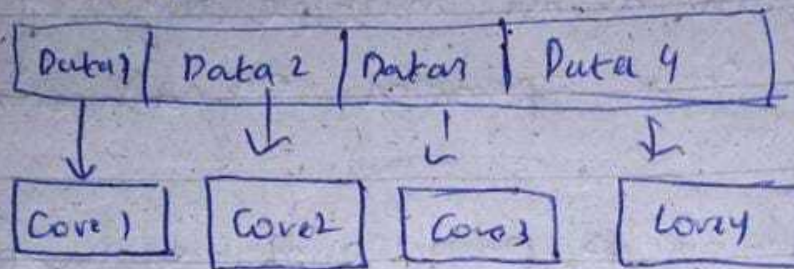 Data 1 Data 2 Data 3 Data 4
Core 1 Core 2 Core 3 Core 4